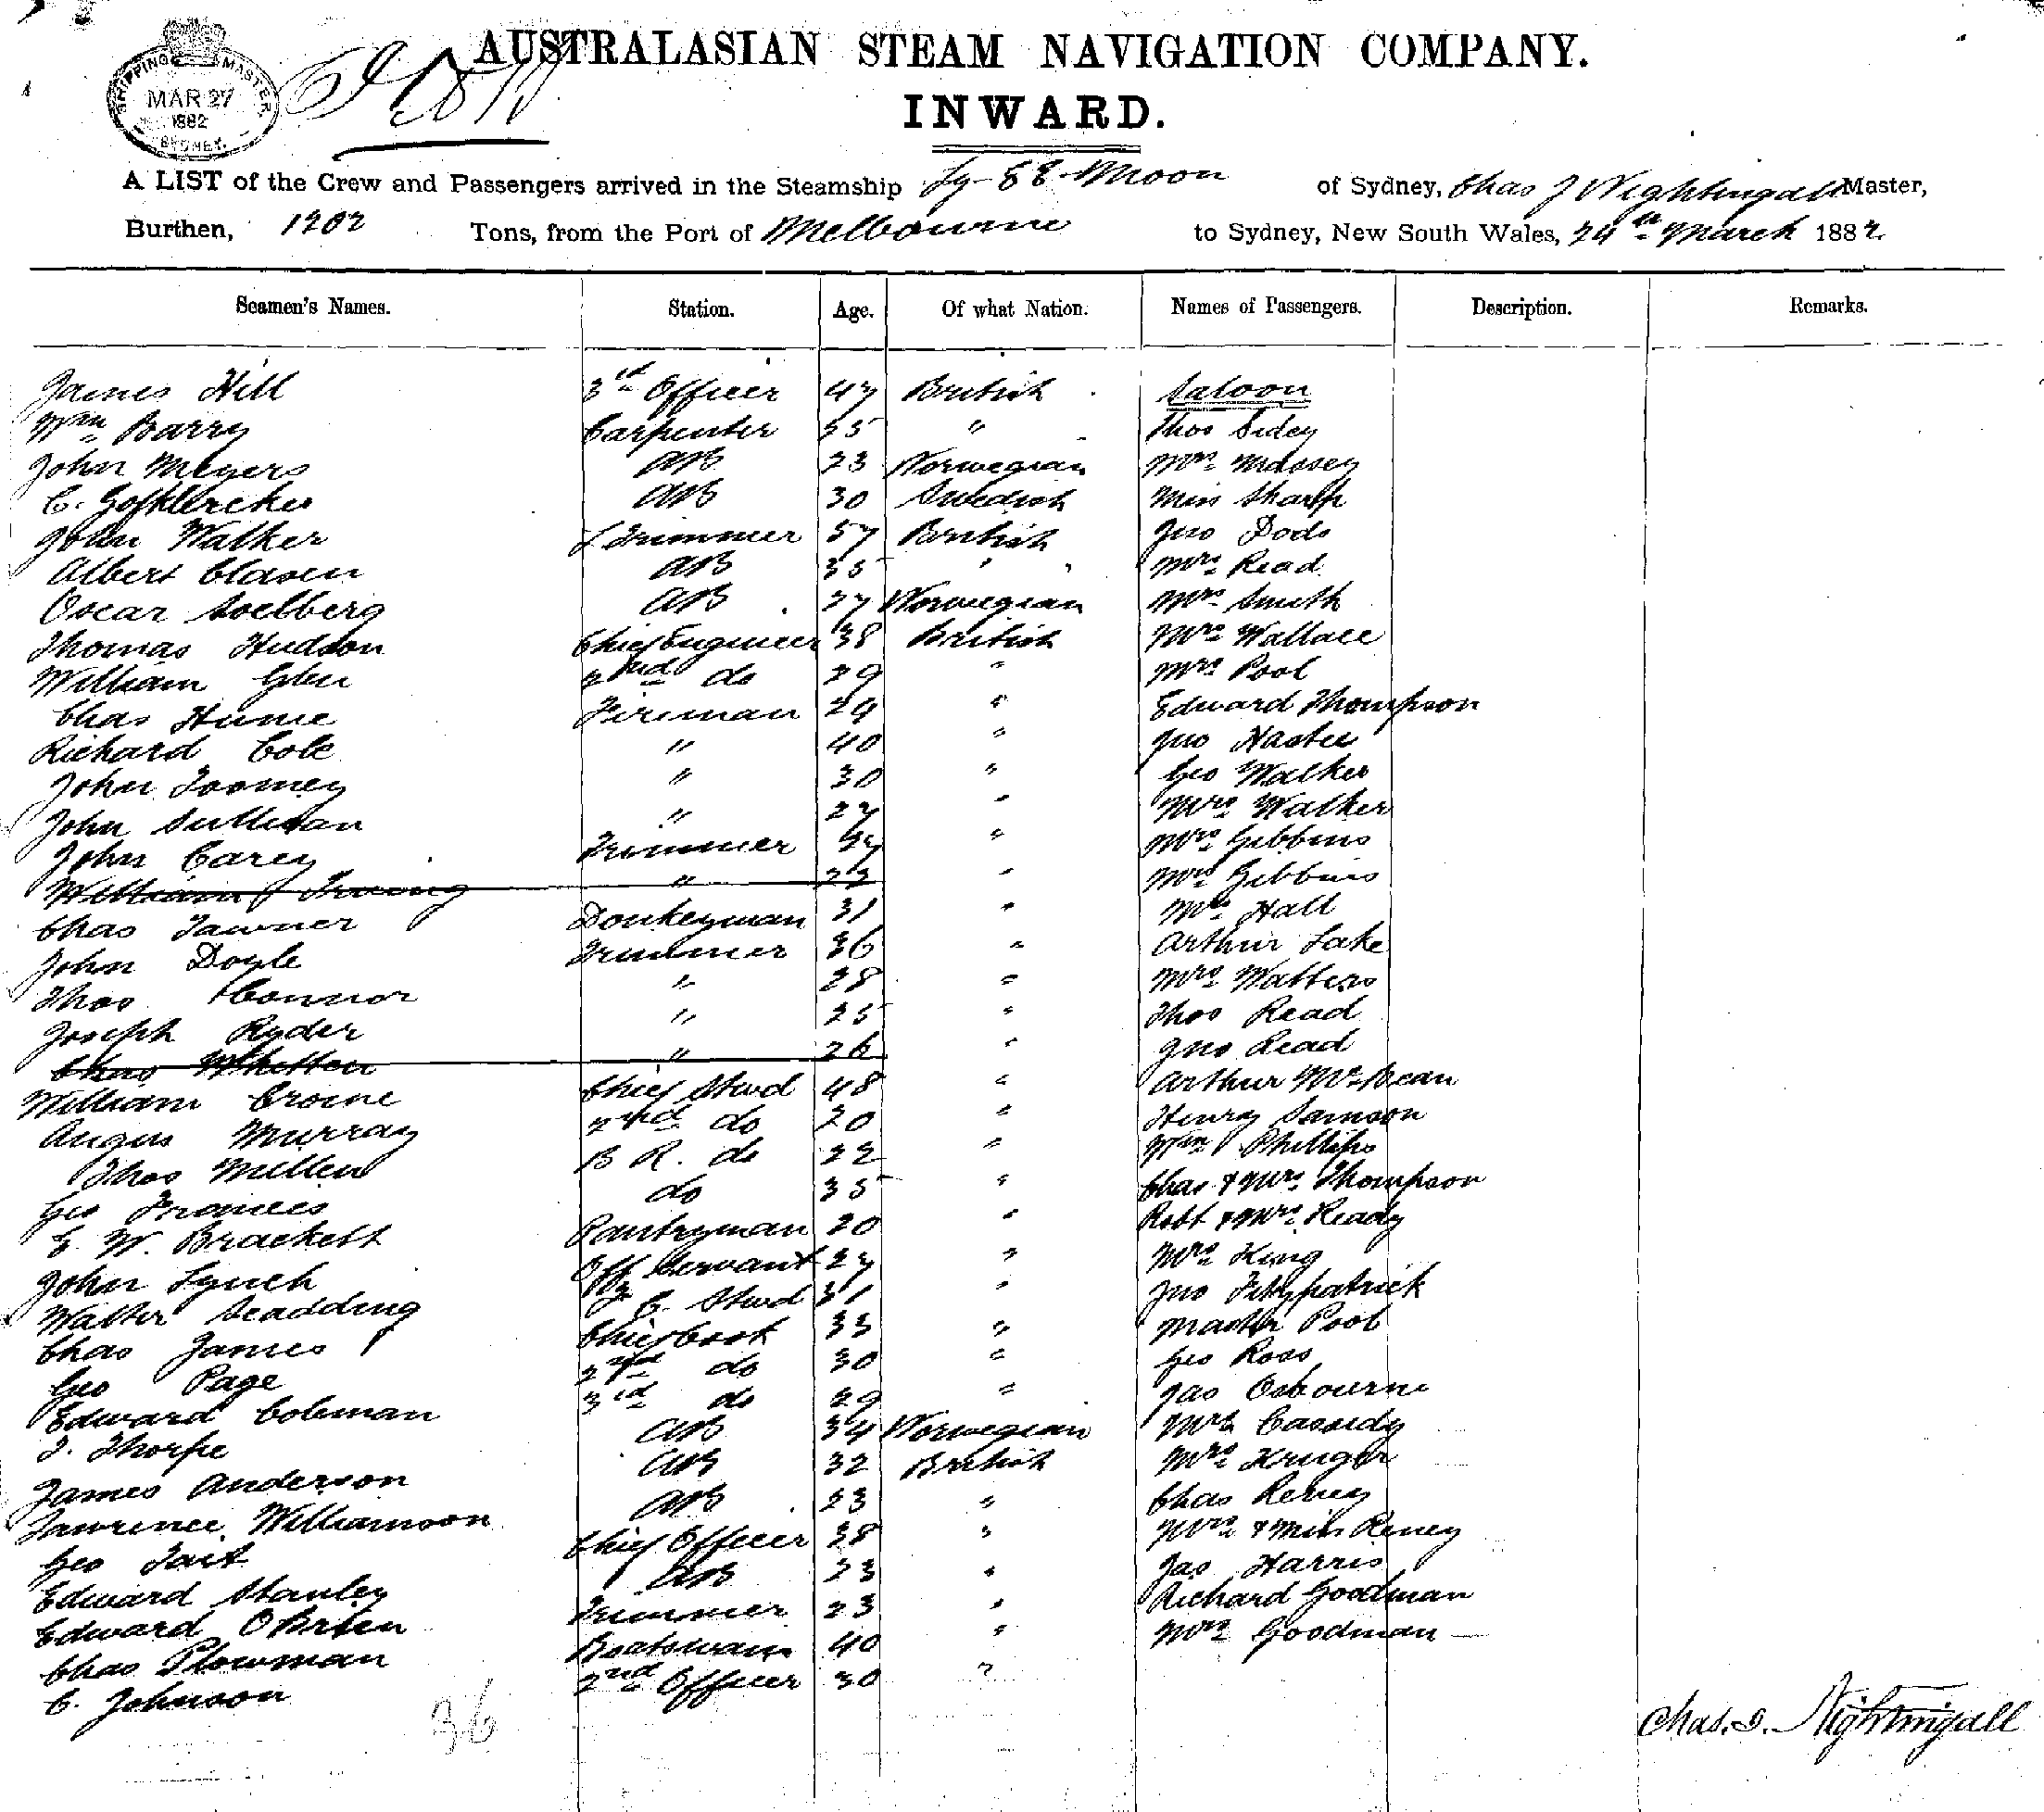 AUSTRALASIAN STEAM NAVIGATION COMPANY.
SHIPPING MASTER
MAR 27
1882
SYDNEY.
INWARD.
A LIST of the Crew and Passengers arrived in the Steamship Ly-EE-Moon of Sydney, Chas J Nightingall Master,
Burthen, 1202 Tons, from the Port of Melbourne to Sydney, New South Wales, 24th March 1882
Seamen's Names. Station. Age. Of what Nation. Names of Passengers. Description. Remarks.
James Hill 3rd Officer 47 British Saloon
Wm Barry Carpenter 55 " Thos Sidey
John Meyers AB 23 Norwegian Mrs Massey
C. AB 30 Swedish Miss Sharp
John Walker L Trimmer 57 British Jno Dods
Albert Clasen AB 35 " Mrs Read
Oscar Soelberg AB 27 Norwegian Mrs Smith
Thomas Hudson Chief Engineer 38 British Mrs Wallace
William Glen 2nd do 29 " Mrs Pool
Chas Hume Fireman 29 " Edward Thompson
Richard Cole " 40 " Jno Hastee
John Toomey " 30 " Geo Walker
John Sullivan " 27 " Mrs Walker
John Carey Trimmer " Mrs Gibbins
William Irving " 22 " Miss Gibbins
Chas Tawner Donkeyman 31 " Mrs Hall
John Doyle Trimmer 36 " Arthur Lake
Thos OConnor " 28 " Mrs Watters
Joseph Ryder " 25 " Thos Read
Chas Whitten " 26 " Jno Read
William Crome Chief Stwd 48 " Arthur McBean
Angus Murray 2nd do 20 " Henry Samson
Thos Millen B R. do 22 " Wm Phillips
Geo Francis do 35 " Chas & Mrs Thompson
E. W. Brackett Pantryman 20 " Robt & Mrs Ready
John Lynch Off Servant 27 " Mrs King
Walter Scadding C. Stwd 31 " Jno Fitzpatrick
Chas James Chief Cook 33 " Master Pool
Geo Page 2nd do 30 " Geo Ross
Edward Coleman 3rd do 29 " Jas Osbourne
T. Thorpe AB 34 Norwegian Mrs Cassidy
James Anderson AB 32 British Mrs Kruger
Lawrence Williamson AB 23 " Chas Reney
Geo Tait Chief Officer 38 " Mrs & Miss Reney
Edward Stanley AB 23 " Jas Harris
Edward OBrien Trimmer 23 " Richard Goodman
Chas Plowman Boatswain 40 " Mrs Goodman
C. Johnson 2nd Officer 30 "
36
Chas. J. Nightingall